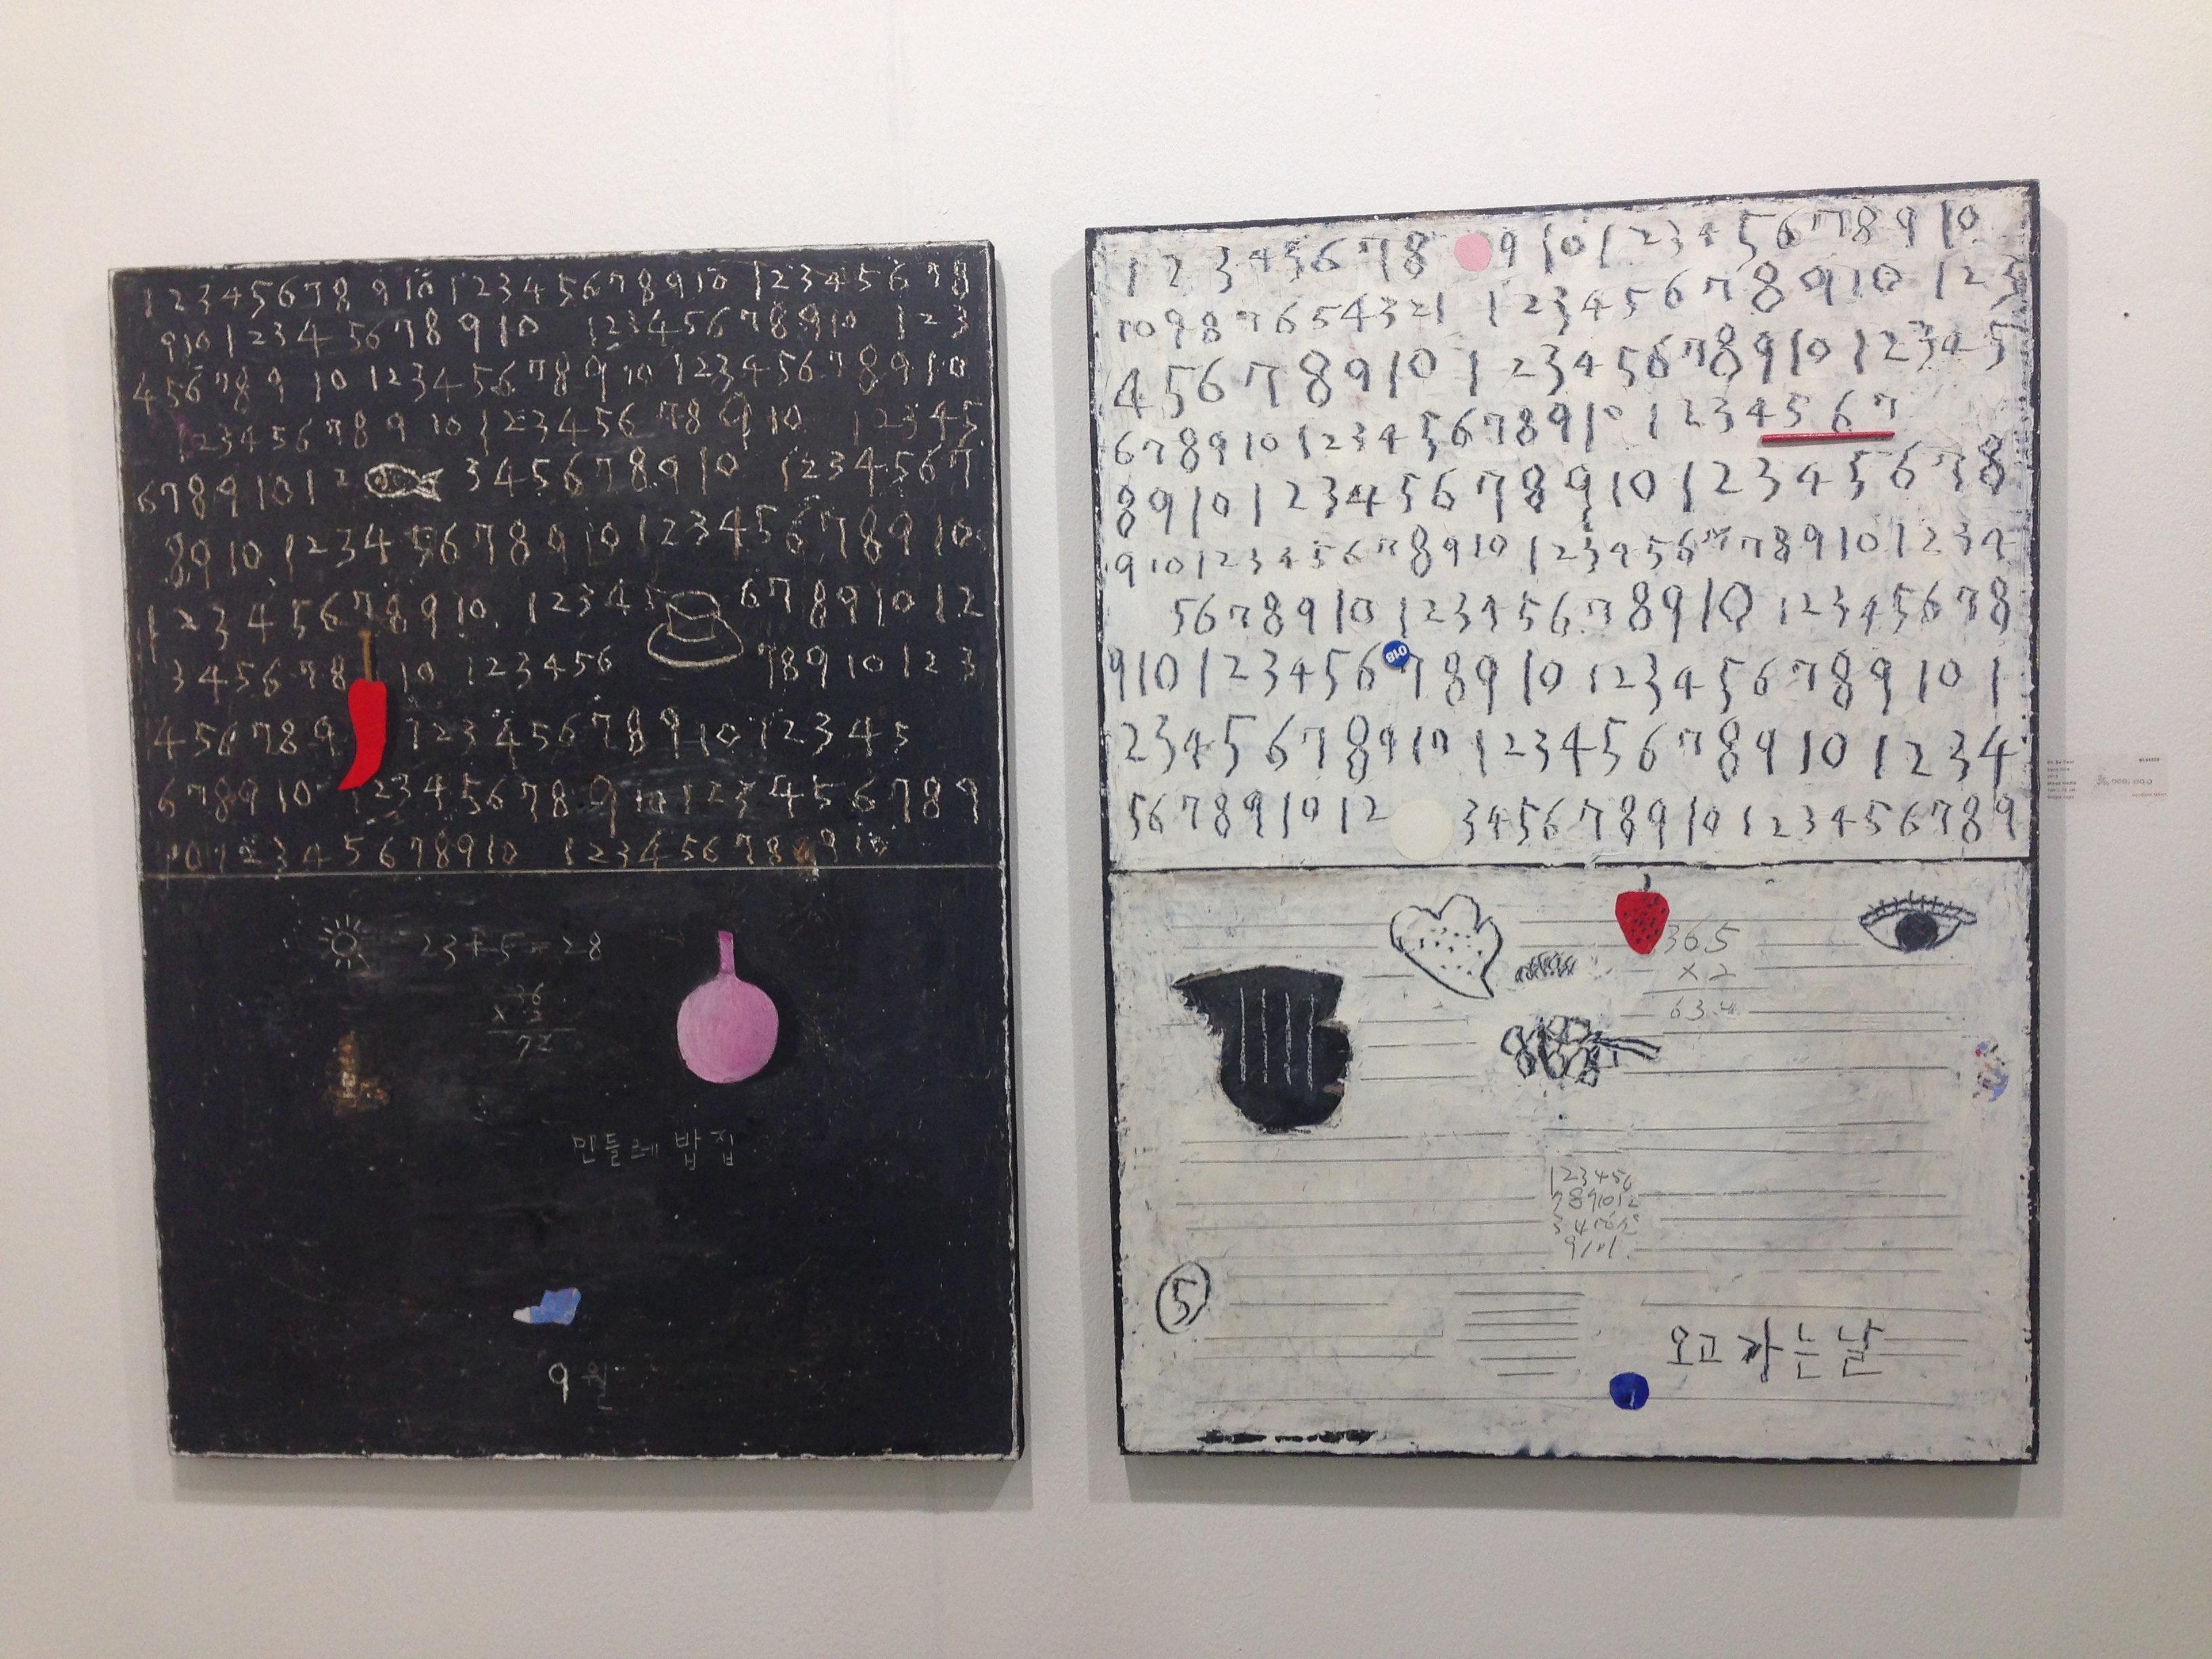 1 2 3 4 5 6 7 8 9 10 1 2 3 4 5 6 7 8 9 10 1 2 3 4 5 6 7 8
9 10 1 2 3 4 5 6 7 8 9 10 1 2 3 4 5 6 7 8 9 10 1 2 3
4 5 6 7 8 9 10 1 2 3 4 5 6 7 8 9 10 1 2 3 4 5 6 7 8 9 10
1 2 3 4 5 6 7 8 9 10 1 2 3 4 5 6 7 8 9 10 1 2 3 4 5
6 7 8 9 10 1 2 3 4 5 6 7 8 9 10 1 2 3 4 5 6 7
8 9 10 1 2 3 4 5 6 7 8 9 10 1 2 3 4 5 6 7 8 9 10
1 2 3 4 5 6 7 8 9 10 1 2 3 4 5 6 7 8 9 10 1 2
3 4 5 6 7 8 10 1 2 3 4 5 6 7 8 9 10 1 2 3
4 5 6 7 8 9 1 2 3 4 5 6 7 8 9 10 1 2 3 4 5
6 7 8 9 10 1 2 3 4 5 6 7 8 9 10 1 2 3 4 5 6 7 8 9
10 1 2 3 4 5 6 7 8 9 10 1 2 3 4 5 6 7 8 9 10
23+5=28
36
x 2
72
민들레 밥집
9월
1 2 3 4 5 6 7 8 9 10 1 2 3 4 5 6 7 8 9 10
10 9 8 7 6 5 4 3 2 1 1 2 3 4 5 6 7 8 9 10 1 2 3
4 5 6 7 8 9 10 1 2 3 4 5 6 7 8 9 10 1 2 3 4 5
6 7 8 9 10 1 2 3 4 5 6 7 8 9 10 1 2 3 4 5 6 7
8 9 10 1 2 3 4 5 6 7 8 9 10 1 2 3 4 5 6 7 8
9 10 1 2 3 4 5 6 7 8 9 10 1 2 3 4 5 6 7 7 8 9 10 1 2 3 4
5 6 7 8 9 10 1 2 3 4 5 6 7 8 9 10 1 2 3 4 5 6 7 8
9 10 1 2 3 4 5 6 018 7 8 9 10 1 2 3 4 5 6 7 8 9 10 1
2 3 4 5 6 7 8 9 10 1 2 3 4 5 6 7 8 9 10 1 2 3 4
5 6 7 8 9 10 1 2 3 4 5 6 7 8 9 10 1 2 3 4 5 6 7 8 9
365
x 2
63
1 2 3 4 5 6
7 8 9 10 1 2
5
오고 가는 날